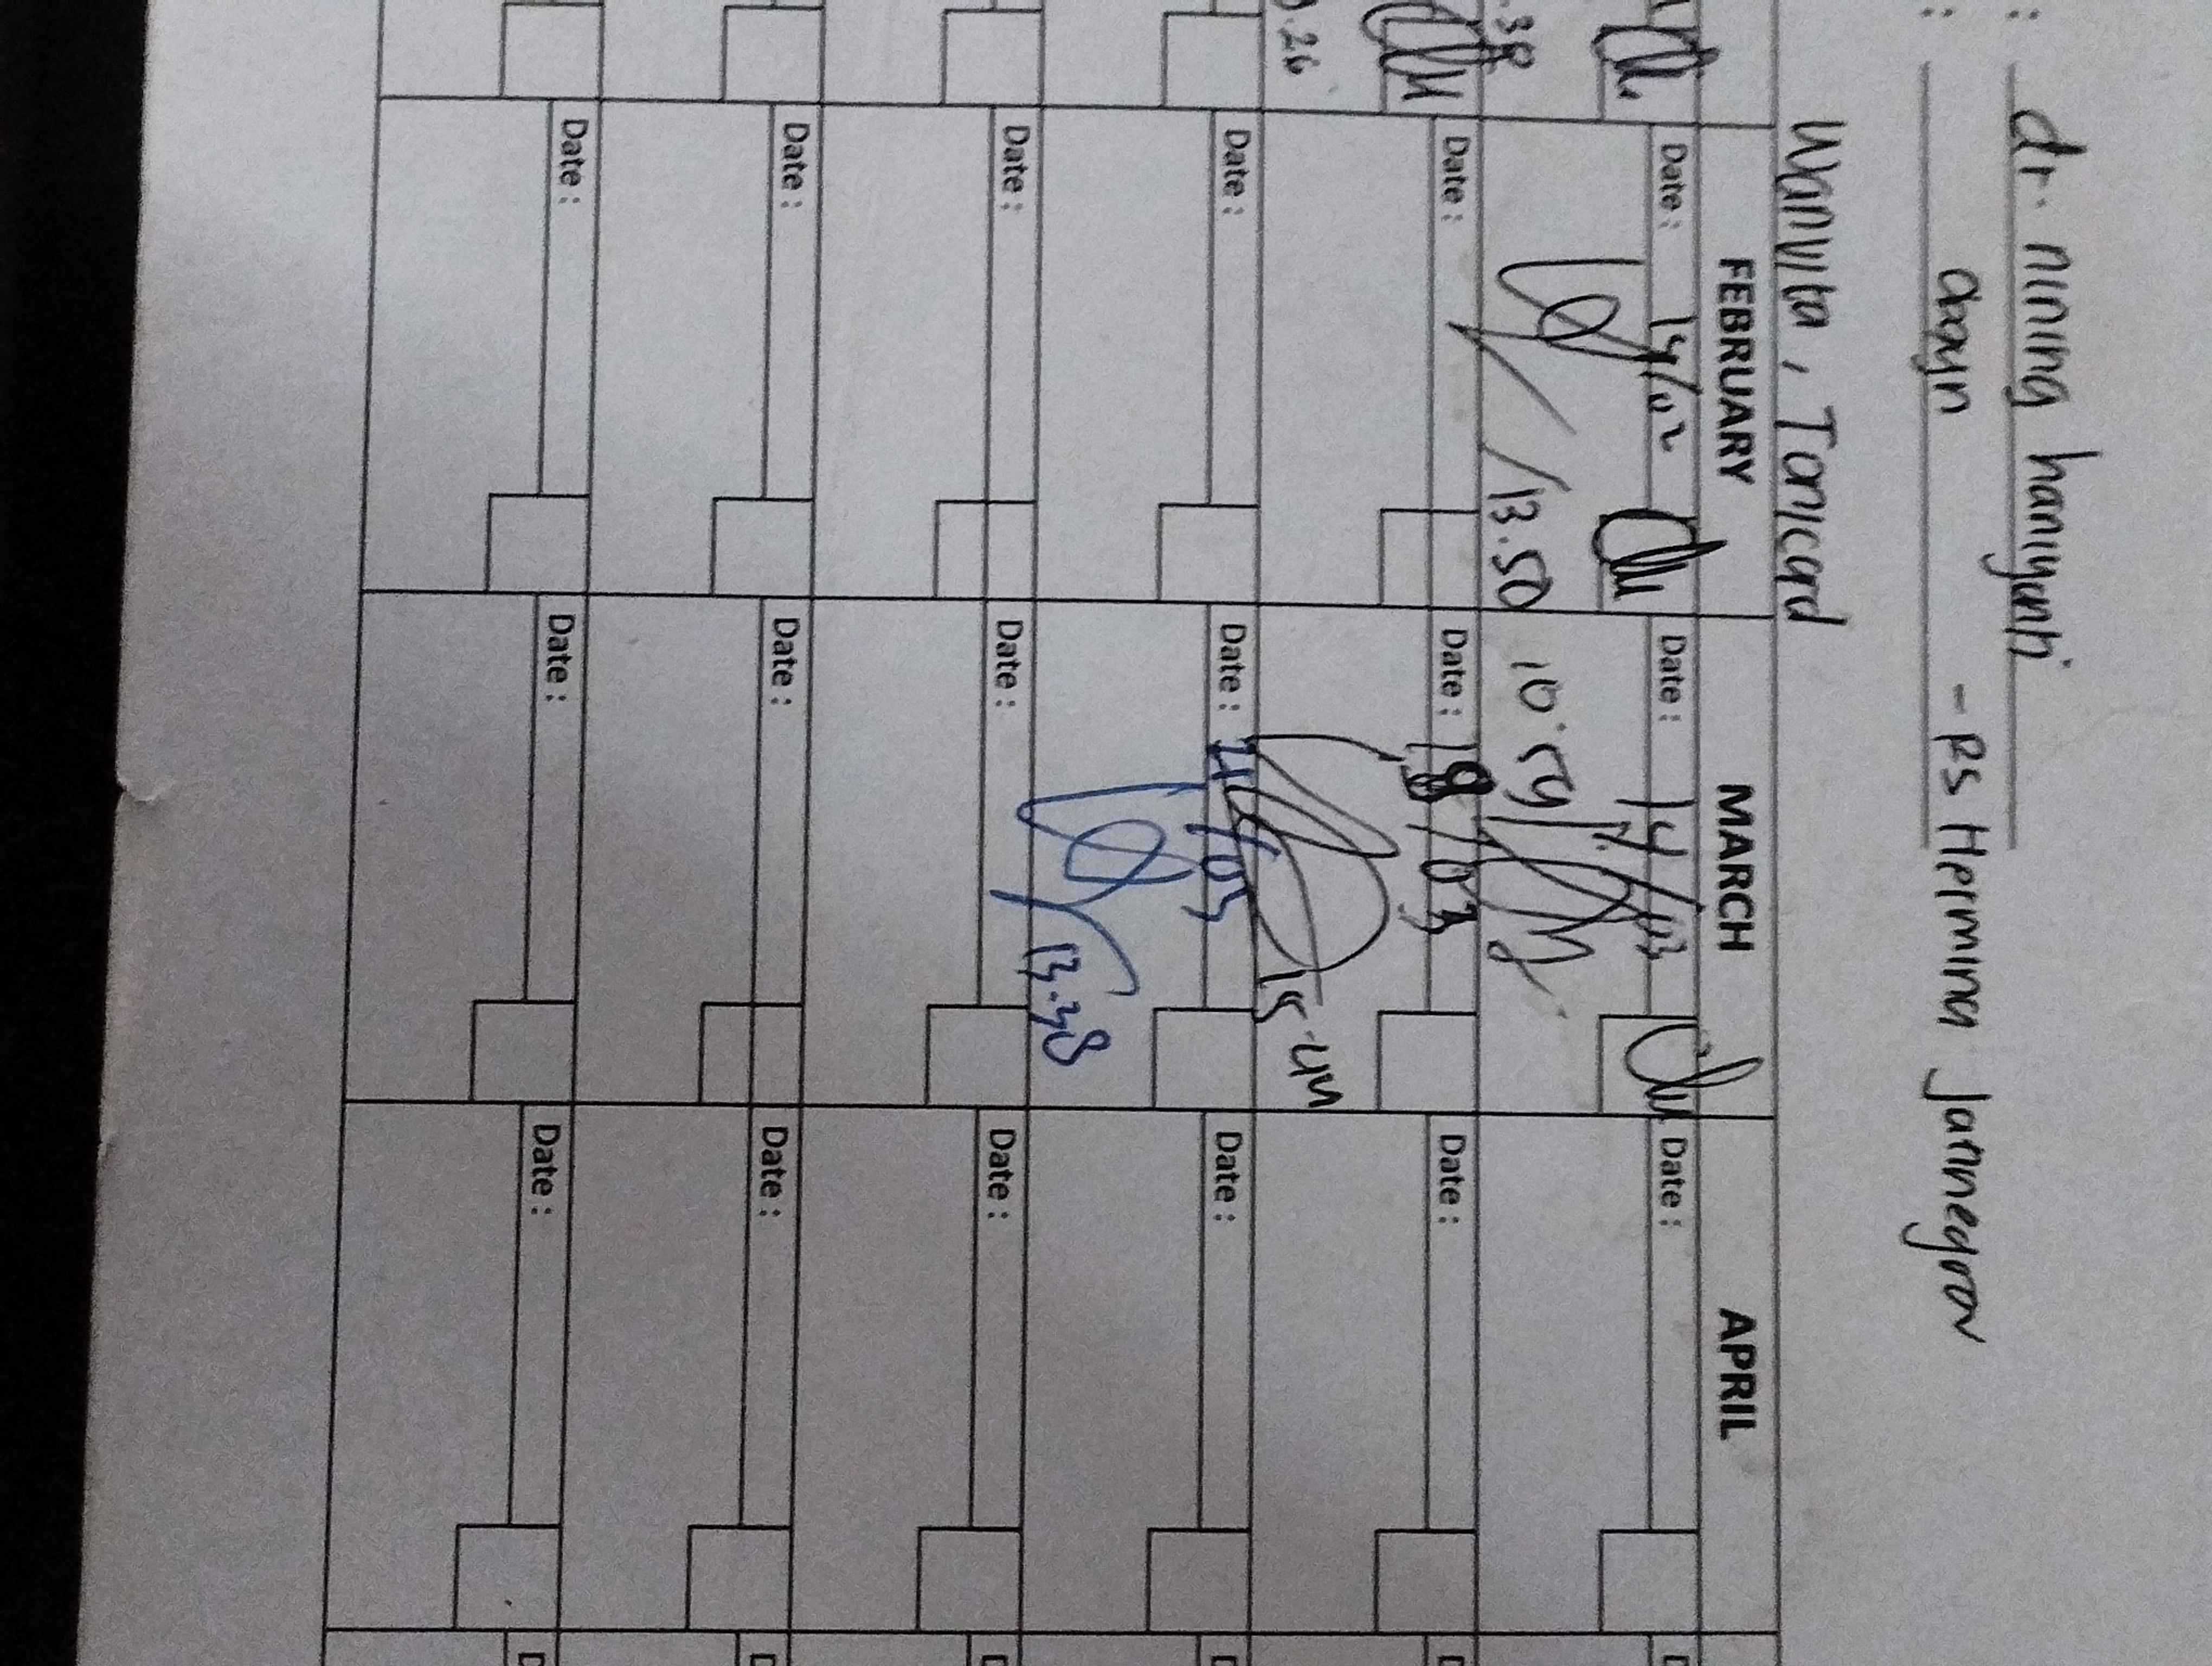 : dr. nining haniyanti
: obgyn - RS Hermina Jatinegara
Wanvita, Tonicard
FEBRUARY MARCH APRIL
Date : 14/02 Date : 14/03 Date :
.38 /13.50 10.59
Date : Date : 18/03 Date :
.26 15.
Date : Date : 21/03 Date :
13.38
Date : Date : Date :
Date : Date : Date :
Date : Date : Date :